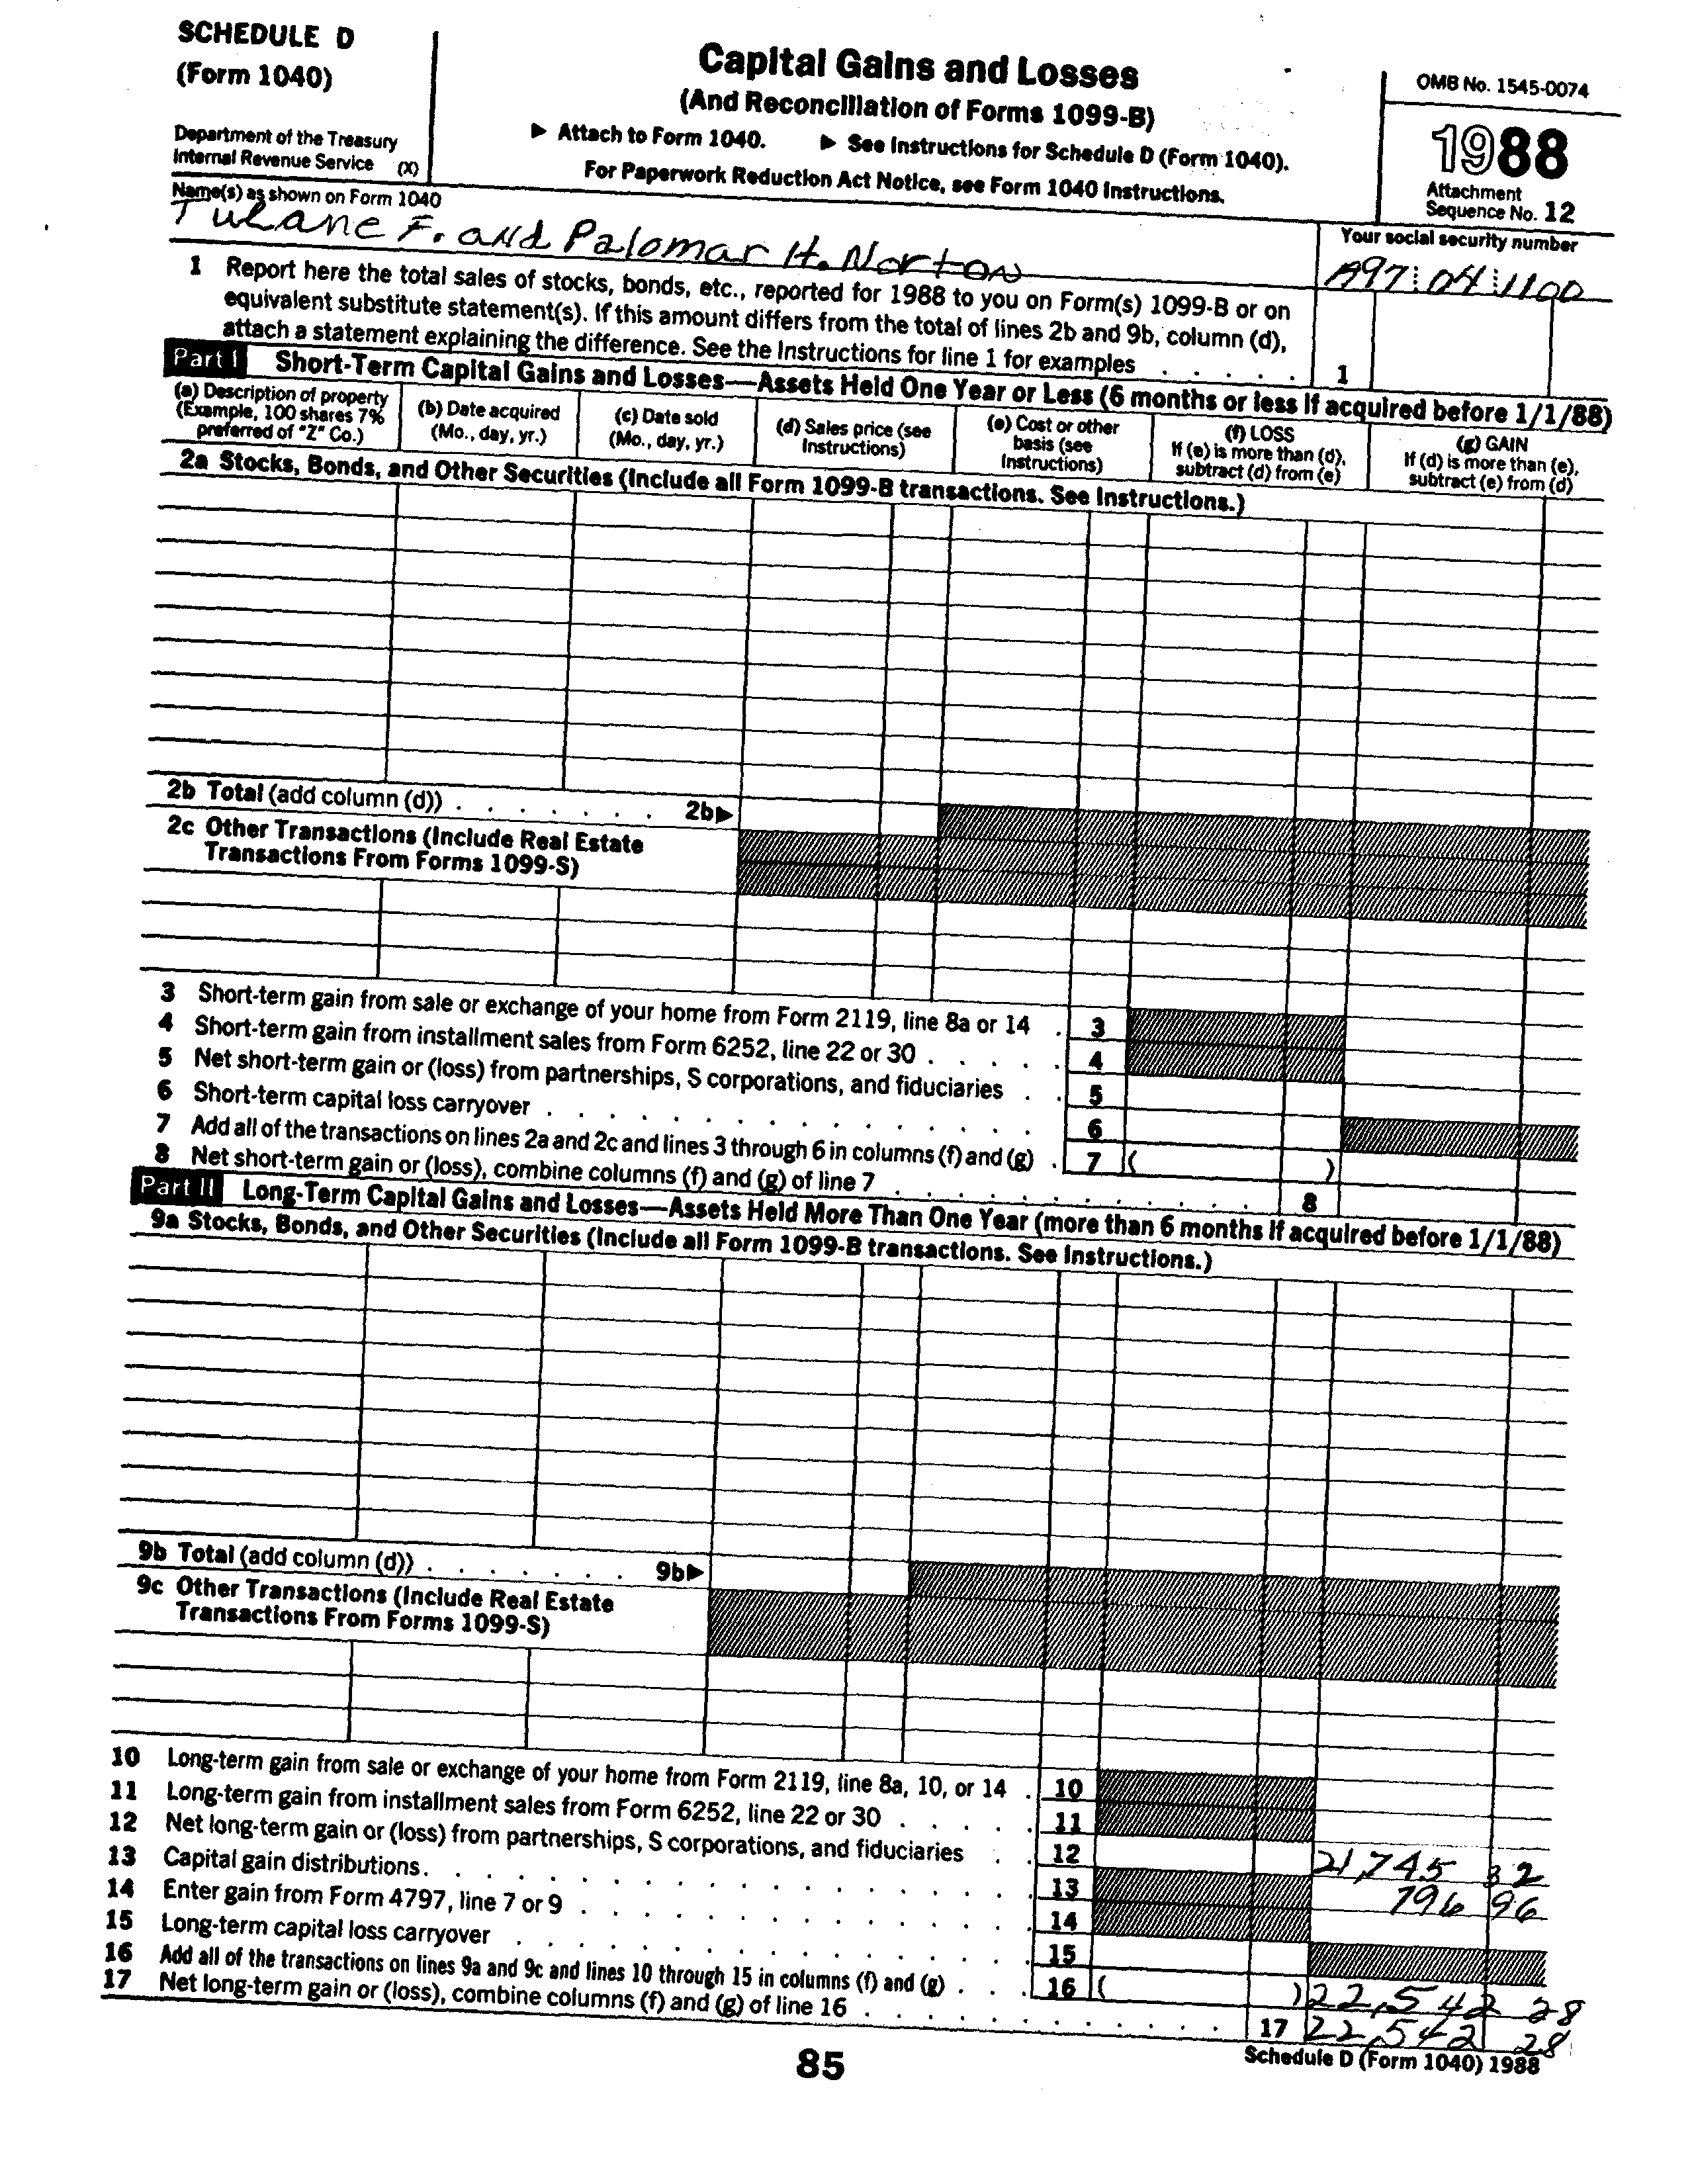 SCHEDULE D
(Form 1040)
Department of the Treasury
Internal Revenue Service (X)
Capital Gains and Losses
(And Reconciliation of Forms 1099-B)
▶ Attach to Form 1040. ▶ See Instructions for Schedule D (Form 1040).
For Paperwork Reduction Act Notice, see Form 1040 Instructions.
OMB No. 1545-0074
1988
Attachment
Sequence No. 12
Name(s) as shown on Form 1040
Tulane F. and Palomar H. Norton
Your social security number
A97 04 1100
1 Report here the total sales of stocks, bonds, etc., reported for 1988 to you on Form(s) 1099-B or on
equivalent substitute statement(s). If this amount differs from the total of lines 2b and 9b, column (d),
attach a statement explaining the difference. See the Instructions for line 1 for examples . . . . . 1
Part I Short-Term Capital Gains and Losses—Assets Held One Year or Less (6 months or less if acquired before 1/1/88)
(a) Description of property
(Example, 100 shares 7%
preferred of "Z" Co.)
(b) Date acquired
(Mo., day, yr.)
(c) Date sold
(Mo., day, yr.)
(d) Sales price (see
Instructions)
(e) Cost or other
basis (see
Instructions)
(f) LOSS
If (e) is more than (d),
subtract (d) from (e)
(g) GAIN
If (d) is more than (e),
subtract (e) from (d)
2a Stocks, Bonds, and Other Securities (Include all Form 1099-B transactions. See Instructions.)
2b Total (add column (d)) . . . . . . . 2b▶
2c Other Transactions (Include Real Estate
Transactions From Forms 1099-S)
3 Short-term gain from sale or exchange of your home from Form 2119, line 8a or 14 . 3
4 Short-term gain from installment sales from Form 6252, line 22 or 30 . . . . . 4
5 Net short-term gain or (loss) from partnerships, S corporations, and fiduciaries . . 5
6 Short-term capital loss carryover . . . . . . . . . . . . . 6
7 Add all of the transactions on lines 2a and 2c and lines 3 through 6 in columns (f) and (g) . 7 ( )
8 Net short-term gain or (loss), combine columns (f) and (g) of line 7 . . . . . . . . . . . . 8
Part II Long-Term Capital Gains and Losses—Assets Held More Than One Year (more than 6 months if acquired before 1/1/88)
9a Stocks, Bonds, and Other Securities (Include all Form 1099-B transactions. See Instructions.)
9b Total (add column (d)) . . . . . . . 9b▶
9c Other Transactions (Include Real Estate
Transactions From Forms 1099-S)
10 Long-term gain from sale or exchange of your home from Form 2119, line 8a, 10, or 14 . 10
11 Long-term gain from installment sales from Form 6252, line 22 or 30 . . . . . 11
12 Net long-term gain or (loss) from partnerships, S corporations, and fiduciaries . . 12 21,745 32
13 Capital gain distributions . . . . . . . . . . . . . . . . 13 796 96
14 Enter gain from Form 4797, line 7 or 9 . . . . . . . . . . . . 14
15 Long-term capital loss carryover . . . . . . . . . . . . . 15
16 Add all of the transactions on lines 9a and 9c and lines 10 through 15 in columns (f) and (g) . . . 16 ( ) 22,542 28
17 Net long-term gain or (loss), combine columns (f) and (g) of line 16 . . . . . . . . . . . . 17 22,542 28
85
Schedule D (Form 1040) 1988